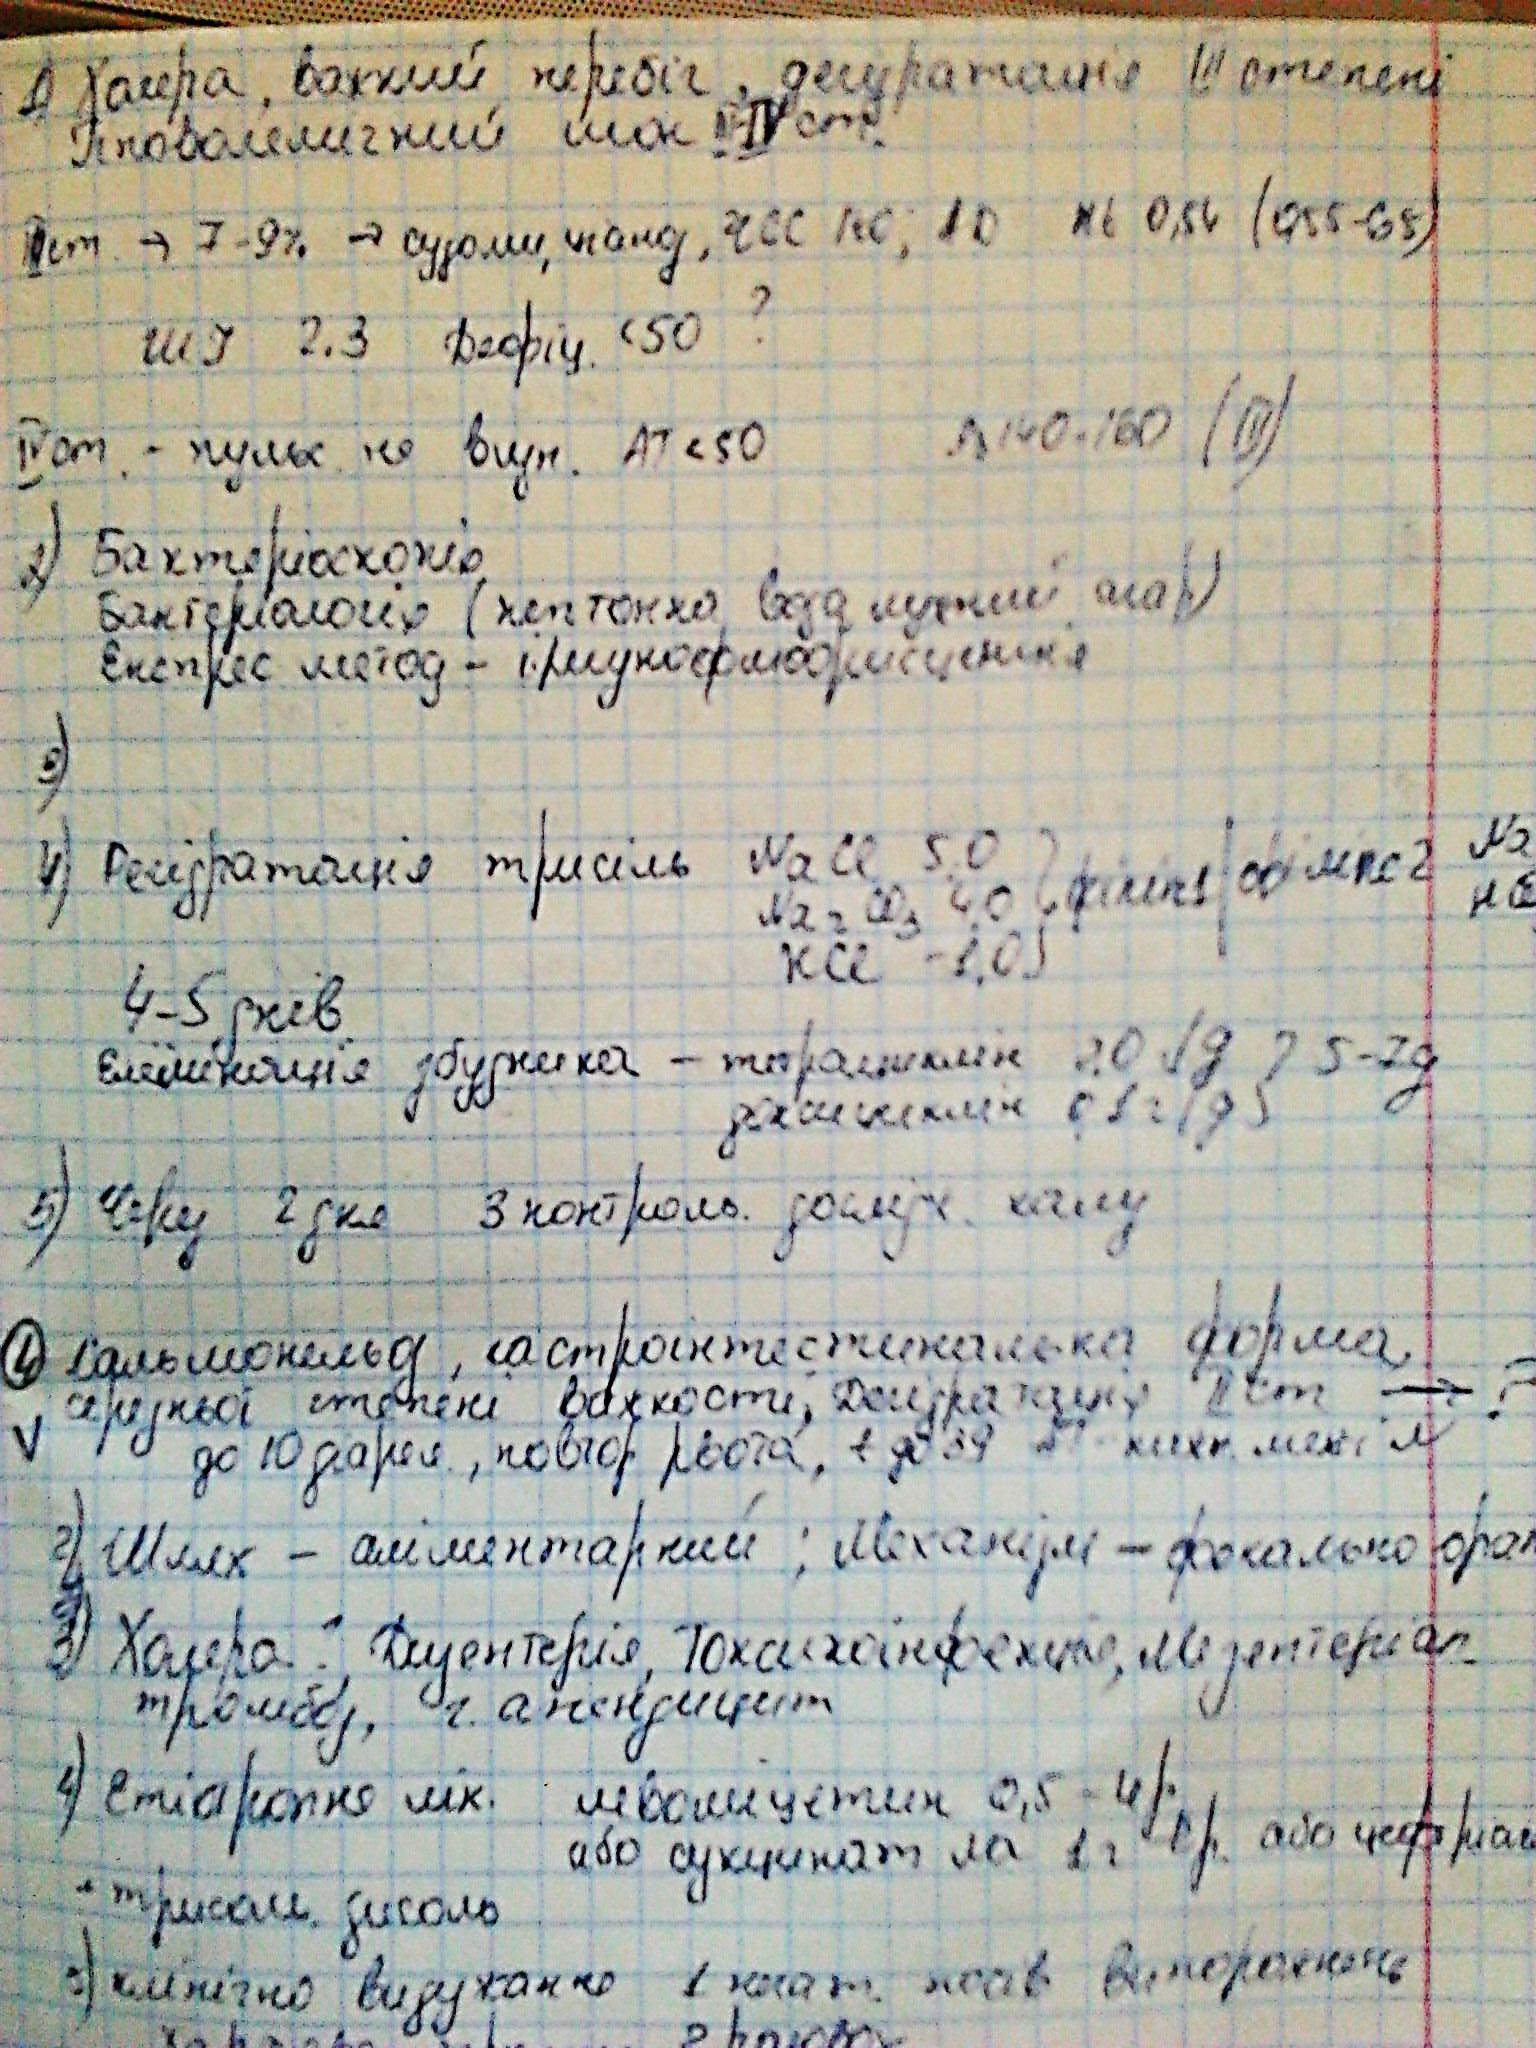 1) Холера, важкий перебіг, дегідратація III степені
Гіповолемічний шок III-IV ст.
III ст. → 7-9% → судоми, ціаноз, ЧСС 120, Ht 0,54 (0,55-0,65)
ШІ 2.3 Дефіц. <50 ?
IV ст. - пульс не визн. АТ < 50 140-160 (III)
2) Бактеріоскопія
Бактеріологія (пептонна вода лужний агар)
Експрес метод - імунофлюорисценція
3)
4) Регідратація трисіль NaCl 5.0
Na2CO3 4.0 філіпс1
KCl - 1.0
4-5 днів
Елімінація збудника - тетрациклін 2.0 / д 5-7 д
доксициклін 0,1 г / д
5) Через 2 дня 3 контроль. дослідж. калу
4 Сальмонельоз, гастроінтестинальна форма,
середньої степені важкості, Дегідратація II ст → ?
V до 10 діарея, повтор. рвота, t до 39
2) Шлях - аліментарний; Механізм - фекально орал
3) Холера ?, Дизентерія, Токсикоінфекція, Мезентеріал.
тромбоз, г. апендицит
4) Етіотропне лік. левоміцетин 0,5 - 4 р.
або сукцинат ла 1 г або цефтріак
+ трисоль. дисоль
5) клінічно видужання 1 негат. посів випорожнень